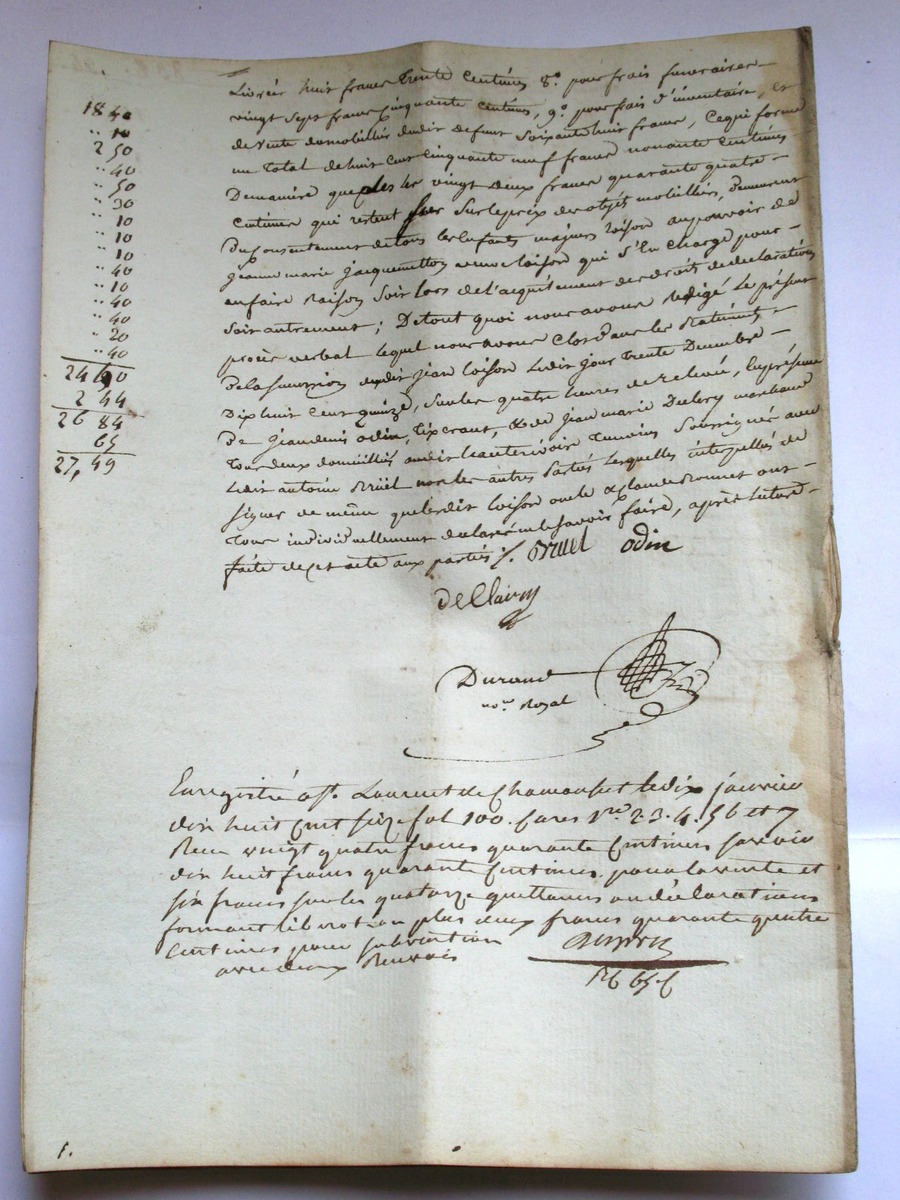 18 40
" 10
2 50
" 40
" 50
" 30
" 10
" 10
" 10
" 40
" 10
" 40
" 40
" 20
" 40
24 40
2 44
26 84
65
27,49
Livrées huit francs trente centimes 8.° pour frais funeraires
vingt sept francs cinquante centimes, 9.° pour frais d'inventaire, et
de vente du mobilier dudit defunt soixante huit francs, ce qui forme
un total de huit cent cinquante neuf francs nonante centimes
De maniere que les vingt deux francs quarante quatre
Centimes qui restent sur le prix des objets mobiliers, demeurent
Du Consentement de tous les Enfants majeurs loison au pouvoir de
jeanne marie jacquemetton veuve loison qui s'en charge pour
en faire raison soit lors de l'acquitement des droits de declaration
soit autrement; De tout quoi nous avons redigé le présent
procès verbal lequel nous avons Clos dans les
De la succession dudit jean loison ledit jour trente Decembre
Dix huit cent quinze, sur les quatre heures de relevée, En présence
De jean denis odin, tixerant, & de jean marie marchand
tous deux domiciliés audit temoins soussignés avec
Ledit antoine Bruël non les autres parties lesquelles interpellés de
signer de même que ledit loison ont
tous individuellement declaré ne le savoir faire, après lecture
faite de cet acte aux parties /. Bruel odin
Durand
no.re Royal
Enregistré a st. Laurent de Chamousset le dix janvier
dix huit cent seize fol 100. Cases 1re 2. 3. 4. 5 6 et 7
Recu vingt quatre francs quarante centimes savoir
dix huit francs quarante centimes pour la vente et
six francs sur les quatorze quittances ou déclarations
formant liberation plus deux francs quarante quatre
Centimes pour subvention
avec deux Renvois
1.